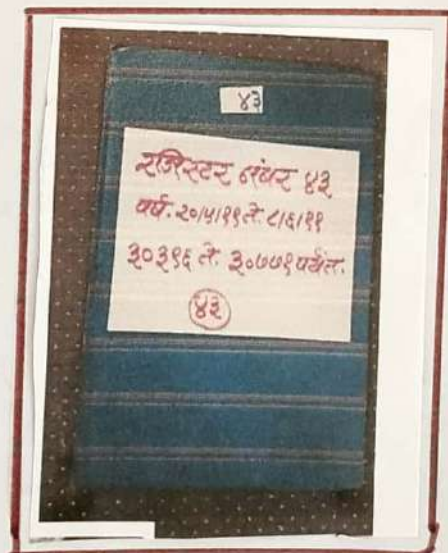 ४३
रजिस्टर नंबर ४३
वर्ष. २०/५/११ ते. ८/६/११
३०३९६ ते. ३०७७१ पर्यंत.
४३